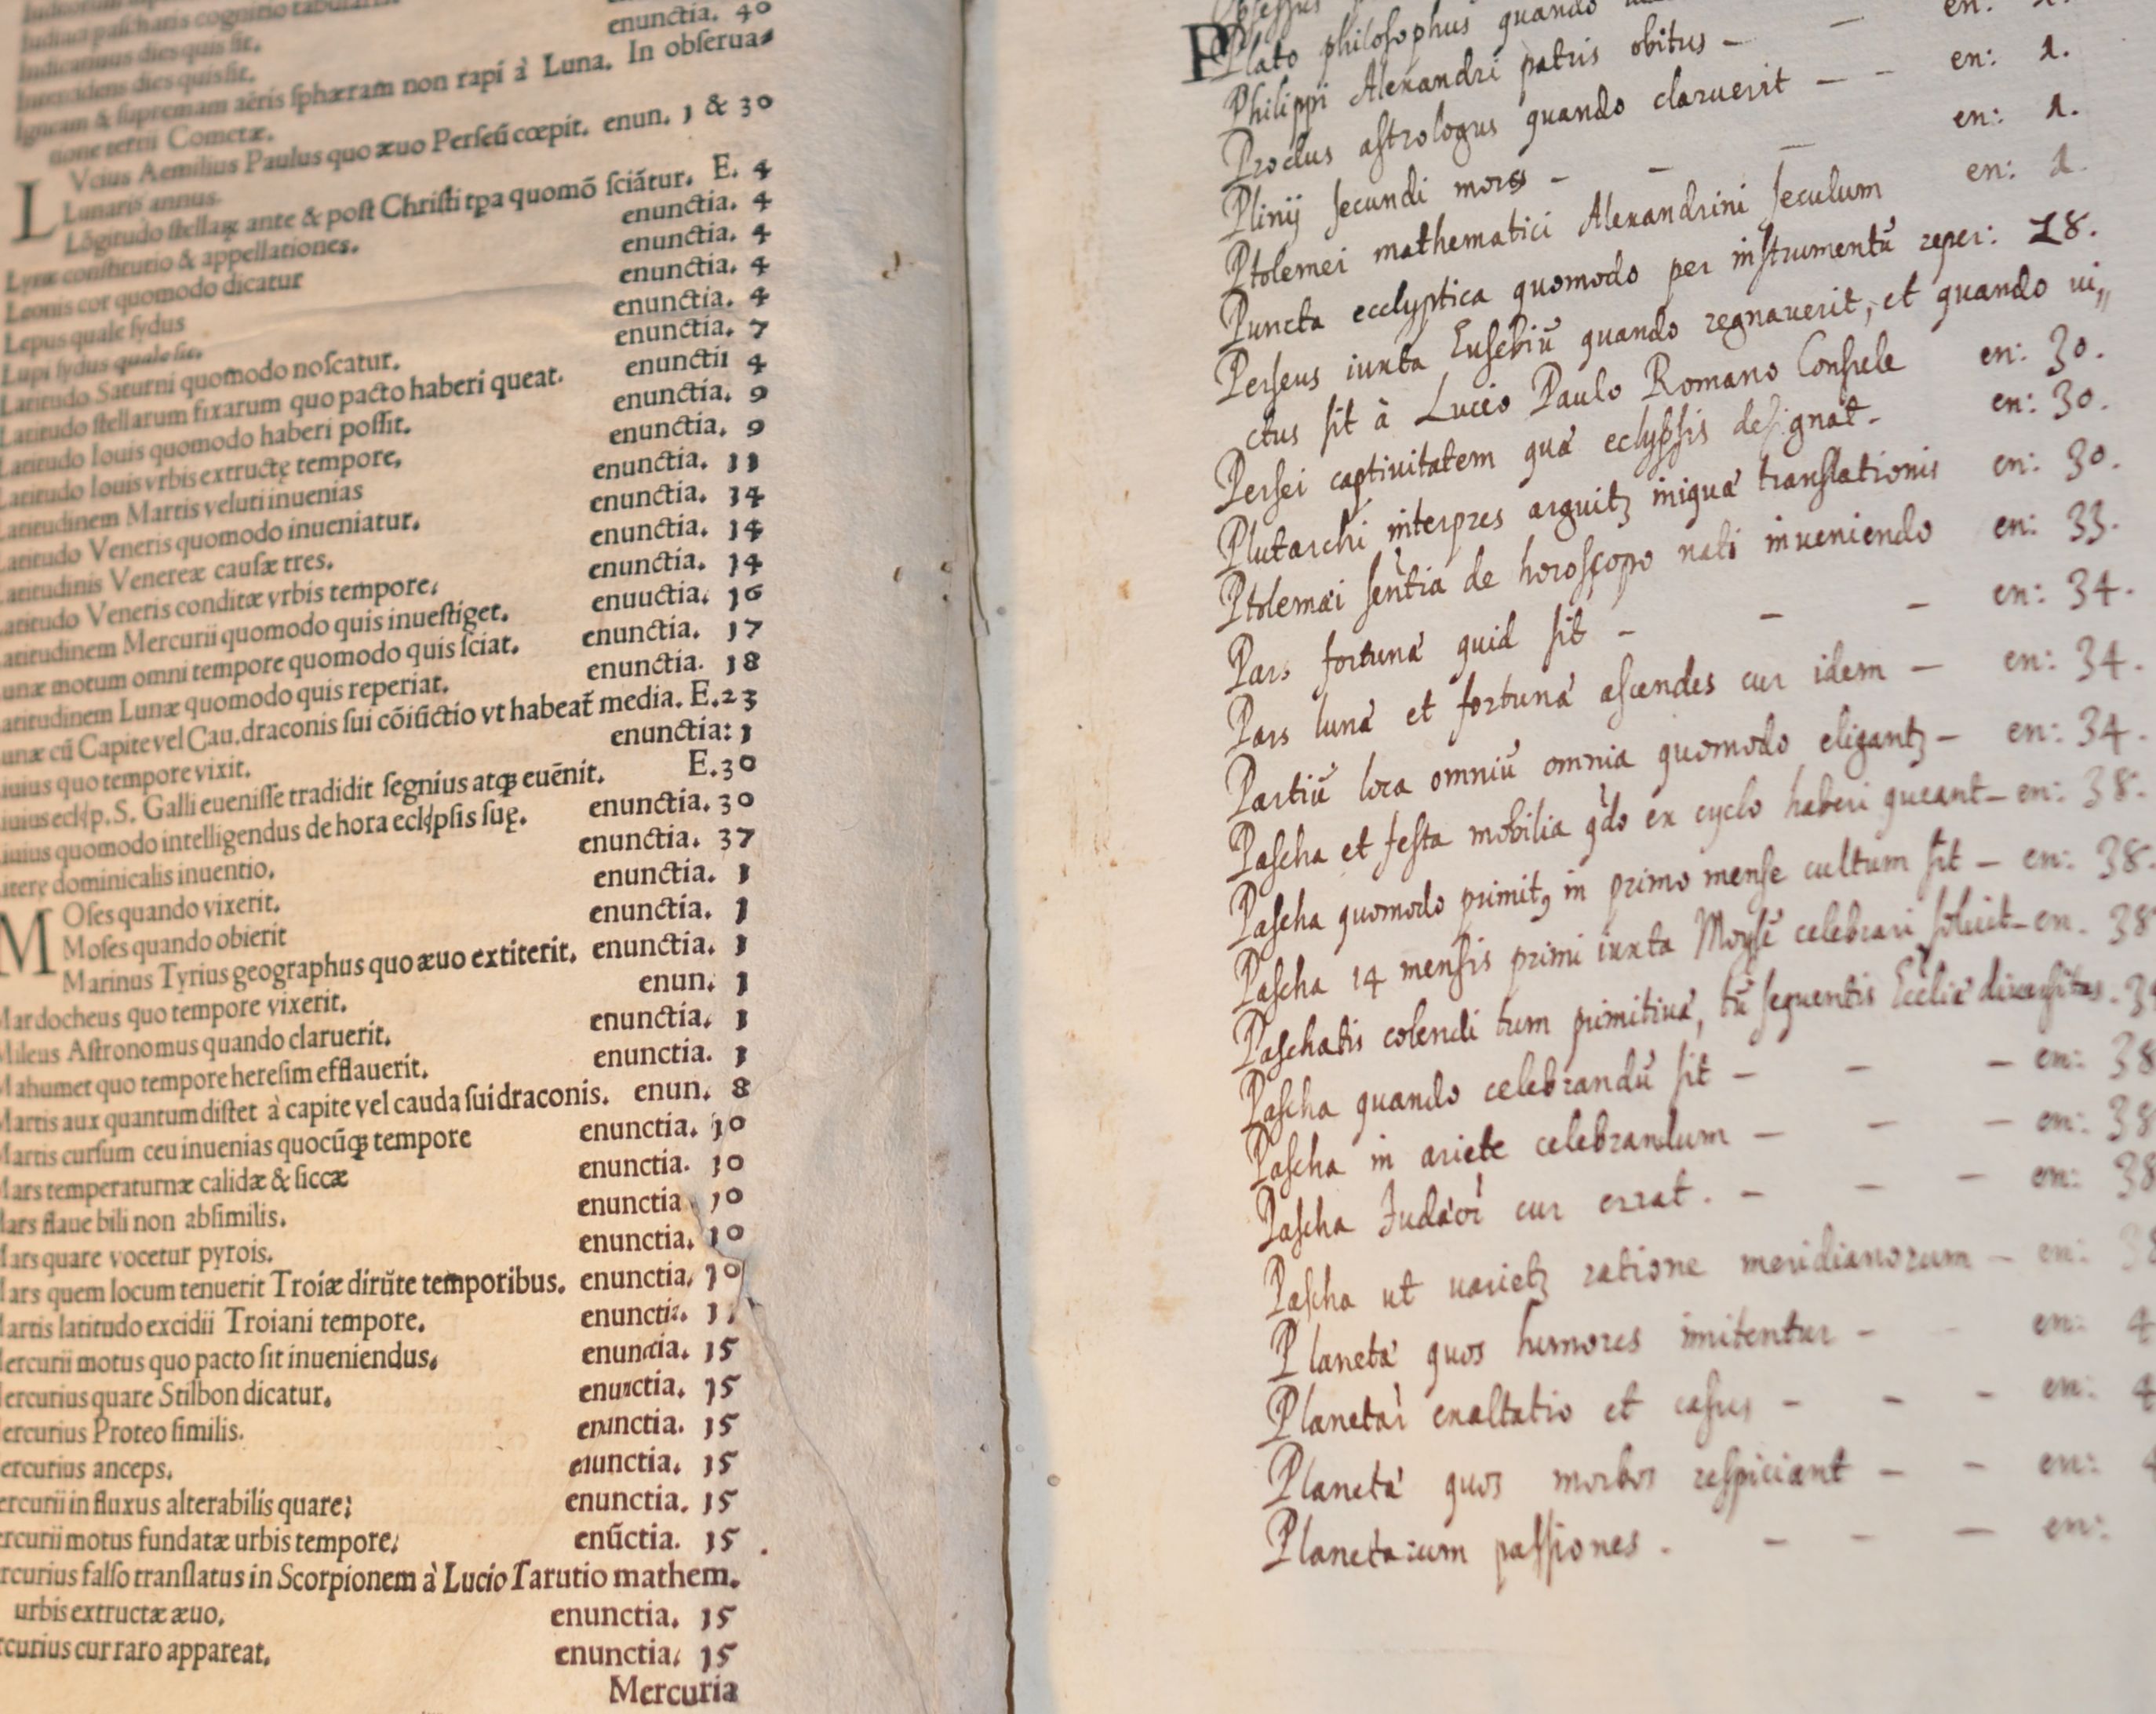 enunctia. 40
Iudicatiuus dies quis sit.
dies quis sit.
Igneam & supremam aëris sphæram non rapi à Luna. In obserua-
tione tertii Cometæ.
LVcius Aemilius Paulus quo æuo Perseū cœpit. enun. 1 & 30
Lunaris annus.
Lōgitudo stellaꝝ ante & post Christi tp̄a quomō sciātur. E. 4
Lyræ constitutio & appellationes. enunctia. 4
Leonis cor quomodo dicatur enunctia. 4
Lepus quale sydus enunctia. 4
Lupi sydus quale sit. enunctia. 4
Latitudo Saturni quomodo noscatur. enunctia. 7
Latitudo stellarum fixarum quo pacto haberi queat. enunctii 4
Latitudo Iouis quomodo haberi possit. enunctia. 9
Latitudo Iouis vrbis extructę tempore, enunctia. 9
Latitudinem Martis veluti inuenias enunctia. 11
Latitudo Veneris quomodo inueniatur. enunctia. 14
Latitudinis Venereæ causæ tres. enunctia. 14
Latitudo Veneris conditæ vrbis tempore. enunctia. 14
Latitudinem Mercurii quomodo quis inuestiget. enuuctia. 16
unæ motum omni tempore quomodo quis sciat. enunctia. 17
atitudinem Lunæ quomodo quis reperiat. enunctia. 18
unæ cū Capite vel Cau. draconis sui cōiūctio vt habeat̄ media. E.23
iuius quo tempore vixit. enunctia: 1
iuius eclꝑ. S. Galli euenisse tradidit segnius atqꝫ euēnit. E.30
iuius quomodo intelligendus de hora eclꝑsis suę. enunctia. 30
iterę dominicalis inuentio. enunctia. 37
MOses quando vixerit. enunctia. 1
Moses quando obierit enunctia. 1
Marinus Tyrius geographus quo æuo extiterit. enunctia. 1
Mardocheus quo tempore vixerit. enun. 1
Mileus Astronomus quando claruerit. enunctia. 1
Mahumet quo tempore heresim efflauerit. enunctia. 1
Martis aux quantum distet à capite vel cauda sui draconis. enun. 8
Martis cursum ceu inuenias quocūqꝫ tempore enunctia. 10
Mars temperaturnæ calidæ & siccæ enunctia. 10
Mars flaue bili non absimilis. enunctia 10
Mars quare vocetur pyrois. enunctia. 10
Mars quem locum tenuerit Troiæ dirūte temporibus. enunctia. 10
artis latitudo excidii Troiani tempore. enunctia. 11
ercurii motus quo pacto sit inueniendus. enunctia. 15
ercurius quare Stilbon dicatur. enunctia. 15
ercurius Proteo similis. enunctia. 15
ercurius anceps. enunctia. 15
ercurii in fluxus alterabilis quare; enunctia. 15
ercurii motus fundatæ urbis tempore. enūctia. 15
rcurius falso translatus in Scorpionem à Lucio Tarutio mathem.
urbis extructæ æuo. enunctia. 15
rcurius cur raro appareat. enunctia. 15
Mercuria
Plato philosophus quando en: 1.
Philippi Alexandri patris obitus – – en: 1.
Proclus astrologus quando claruerit – – en: 1.
Plinij secundi mors – – – en: 1.
Ptolemei mathematici Alexandrini seculum
Puncta ecclyptica quomodo per instrumentū reper: 28.
Perseus iuxta Eusebiū quando regnauerit, et quando ui„
ctus sit à Lucio Paulo Romano Consule en: 30.
Persei captiuitatem quæ eclypsis designat. en: 30.
Plutarchi interpres arguitꝫ iniquæ translationis en: 30.
Ptolemæi sentia de horoscopo nati inueniendo en: 33.
Pars fortunæ quid sit – – – en: 34.
Pars lunæ et fortunæ ascendes cur idem – en: 34.
Partiū loca omniū omnia quomodo eligantꝫ – en: 34.
Pascha et festa mobilia qdo ex cyclo haberi queant – en: 38.
Pascha quomodo primitꝰ in primo mense cultum sit – en: 38.
Pascha 14 mensis primi iuxta Moysē celebrari soluit – en. 38
Paschatis colendi tum primitiuæ, tū sequentis Eccliæ diuersitas. 3
Pascha quando celebrandū sit – – – en: 38
Pascha in ariete celebrandum – – – en: 38
Pascha Judæor cur errat. – – – en: 38
Pascha ut varietꝫ ratione meridianorum – en: 38
Planetæ quos humores imitentur – – en: 4
Planetar exaltatio et casus – – – en: 4
Planetæ quos morbos respiciant – – en: 4
Planetarum passiones. – – – en: